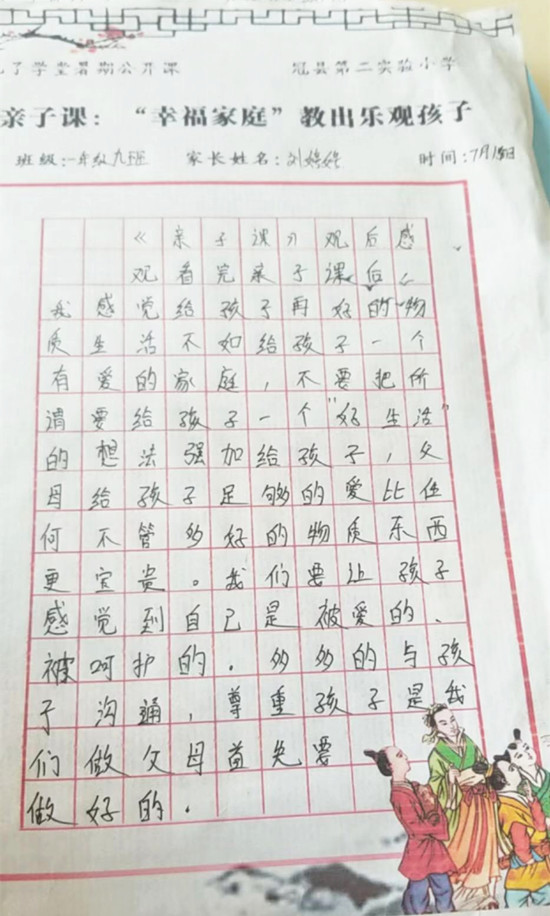 了学堂暑期公开课 冠县第二实验小学
亲子课：“幸福家庭”教出乐观孩子
班级：一年级九班 家长姓名：刘婷婷 时间：7月15日
《亲子课》观后感
观看完亲子课后，
我感觉给孩子再好的物
质生活不如给孩子一个
有爱的家庭，不要把所
谓要给孩子一个“好生活”
的想法强加给孩子，父
母给孩子足够的爱比任
何不管多好的物质东西
更宝贵。我们要让孩子
感觉到自己是被爱的、
被呵护的．多多的与孩
子沟通，尊重孩子是我
们做父母首先要
做好的．